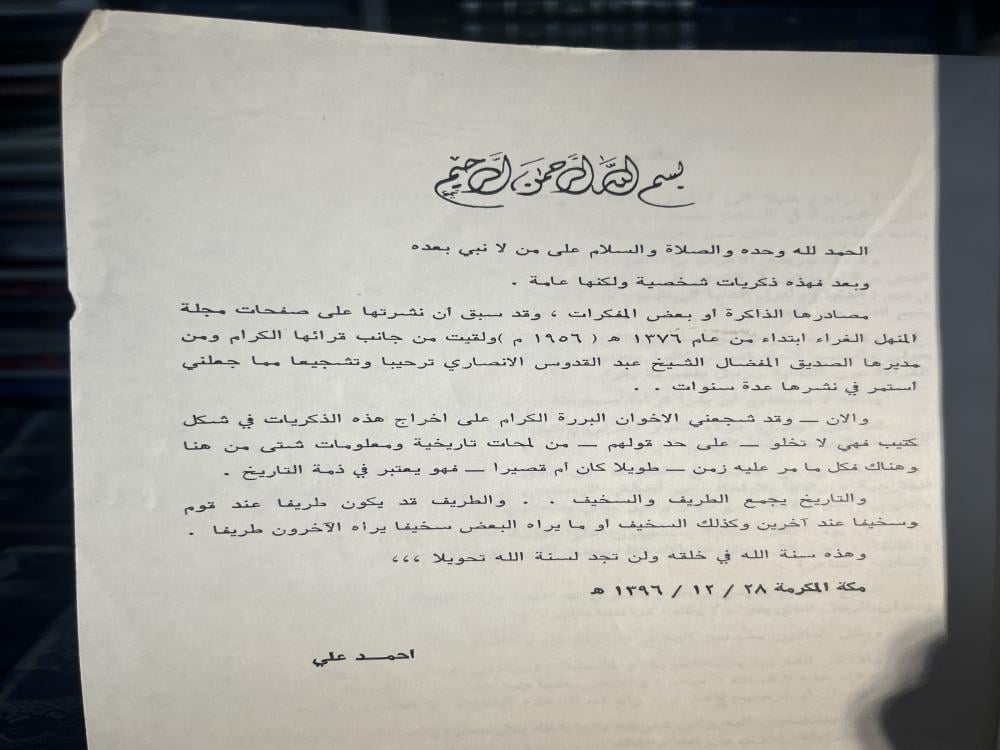 بسم الله الرحمن الرحيم
الحمد لله وحده والصلاة والسلام على من لا نبي بعده
وبعد فهذه ذكريات شخصية ولكنها عامة .
مصادرها الذاكرة او بعض المفكرات ، وقد سبق ان نشرتها على صفحات مجلة
المنهل الغراء ابتداء من عام ١٣٧٦ ه ( ١٩٥٦ م )ولقيت من جانب قرائها الكرام ومن
مديرها الصديق المفضال الشيخ عبد القدوس الانصاري ترحيبا وتشجيعا مما جعلني
استمر في نشرها عدة سنوات . .
والان — وقد شجعني الاخوان البررة الكرام على اخراج هذه الذكريات في شكل
كتيب فهي لا تخلو — على حد قولهم — من لمحات تاريخية ومعلومات شتى من هنا
وهناك فكل ما مر عليه زمن — طويلا كان أم قصيرا — فهو يعتبر في ذمة التاريخ .
والتاريخ يجمع الطريف والسخيف . . والطريف قد يكون طريفا عند قوم
وسخيفا عند آخرين وكذلك السخيف او ما يراه البعض سخيفا يرأه الآخرون طريفا .
وهذه سنة الله في خلقه ولن تجد لسنة الله تحويلا ،،،
مكة المكرمة ٢٨ / ١٢ / ١٣٩٦ ه
احمـــد علي